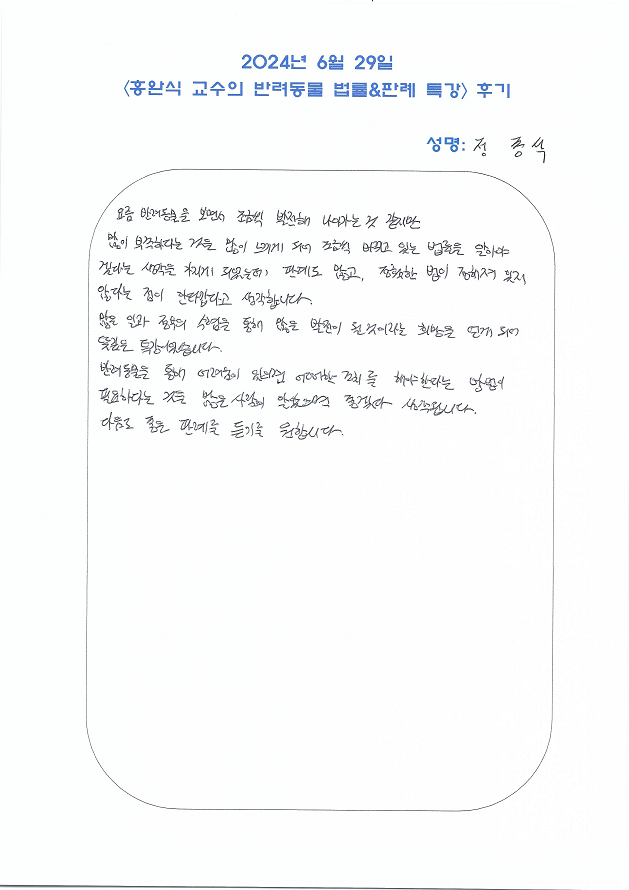 2024년 6월 29일
<홍완식 교수의 반려동물 법률&판례 특강> 후기
성명: 정 종 식
요즘 반려동물을 보면서 조금씩 발전해 나아가는 것 같지만
많이 부족하다는 것을 많이 느끼게 되어 조금씩 바뀌고 있는 법률을 알아야
겠다는 생각을 가지게 되었는데, 판례도 많고, 정확한 법이 정해져 있지
않다는 점이 안타깝다고 생각합니다.
많은 일과 교육의 수업을 통해 많은 발전이 될 것이라는 희망을 얻게 되어
뜻깊은 특강이었습니다.
반려동물을 통해 어려움이 된다면 어떠한 조치를 해야 한다는 방법이
필요하다는 것을 많은 사람이 알았으면 좋겠다 생각됩니다.
다음도 좋은 판례를 듣기를 원합니다.